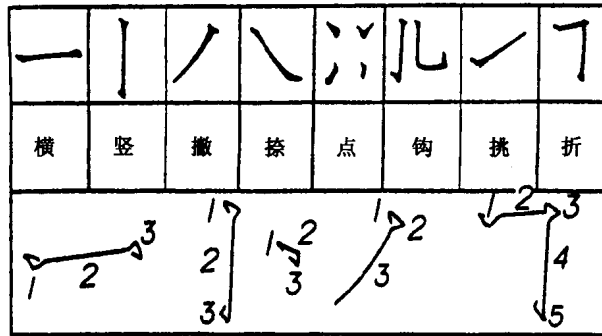 横 竖 撇 捺 点 钩 挑 折
1 2 3
1 2 3
1 2 3
1 2 3
1 2 3 4 5